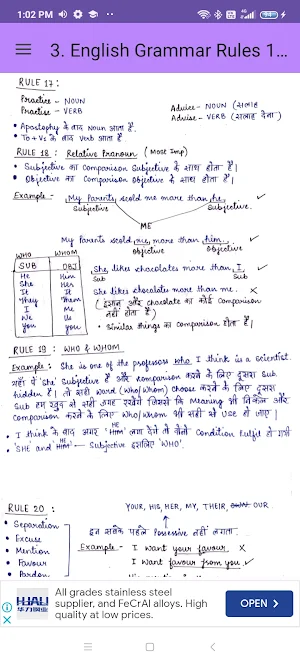 1:02 PM
94
3. English Grammar Rules 1...
RULE 17:
Practice - NOUN
Practise - VERB
Advice - NOUN (सलाह
Advise - VERB (सलाह देना)
• Apostophy के बाद Noun आता है
• To + V₁ के बाद Verb आता है.
RULE 18: Relative Pranoun (Most Imp)
• Subjective का Comparison Subjective के साथ होता है।
• Objective का Comparison Objective के साथ होता है।
Example - My Parents scold me more than he.
Subjective Subjective
ME
My Parents scold me more than him. ✓
Objective Objective
WHO WHOM
SUB OBJ
He Him
She Her
It It
They Them
I Me
We Us
You You
She likes chocolates more than I ✓
Sub Sub
She likes chocolates more than me. ×
(इंसान और chocolate का कोई comparison
नहीं होता है)
• Similar things का comparison होता है।
RULE 19: WHO & WHOM
Example: She is one of the professors who I think is a scientist.
यहाँ पे 'She' Subjective है और comparison करने के लिए दूसरा Sub
hidden है। तो सही word (Who/Whom) choose करने के लिए दूसरा
Sub हम खुद से सही जगह रखेंगे जिससे कि Meaning भी निकले और
Comparison करने के लिए Who/Whom भी सही से use हो जाए।
• I think के बाद अगर 'Him' लगा देते तो दोनों Condition fulfil हो
HE
• 'SHE and HIM' — Subjective इसलिए 'WHO'.
HE
RULE 20:
YOUR, HIS, HER, MY, THEIR, OWN OUR.
• Separation
• Excuse
• Mention
• Favour
• Pardon
इन सबके पहले Possessive नहीं लगता.
Example - I want your favour ×
I want favour from you. ✓
All grades stainless steel
supplier, and FeCrAl alloys. High
quality at low prices.
OPEN >
HUALI